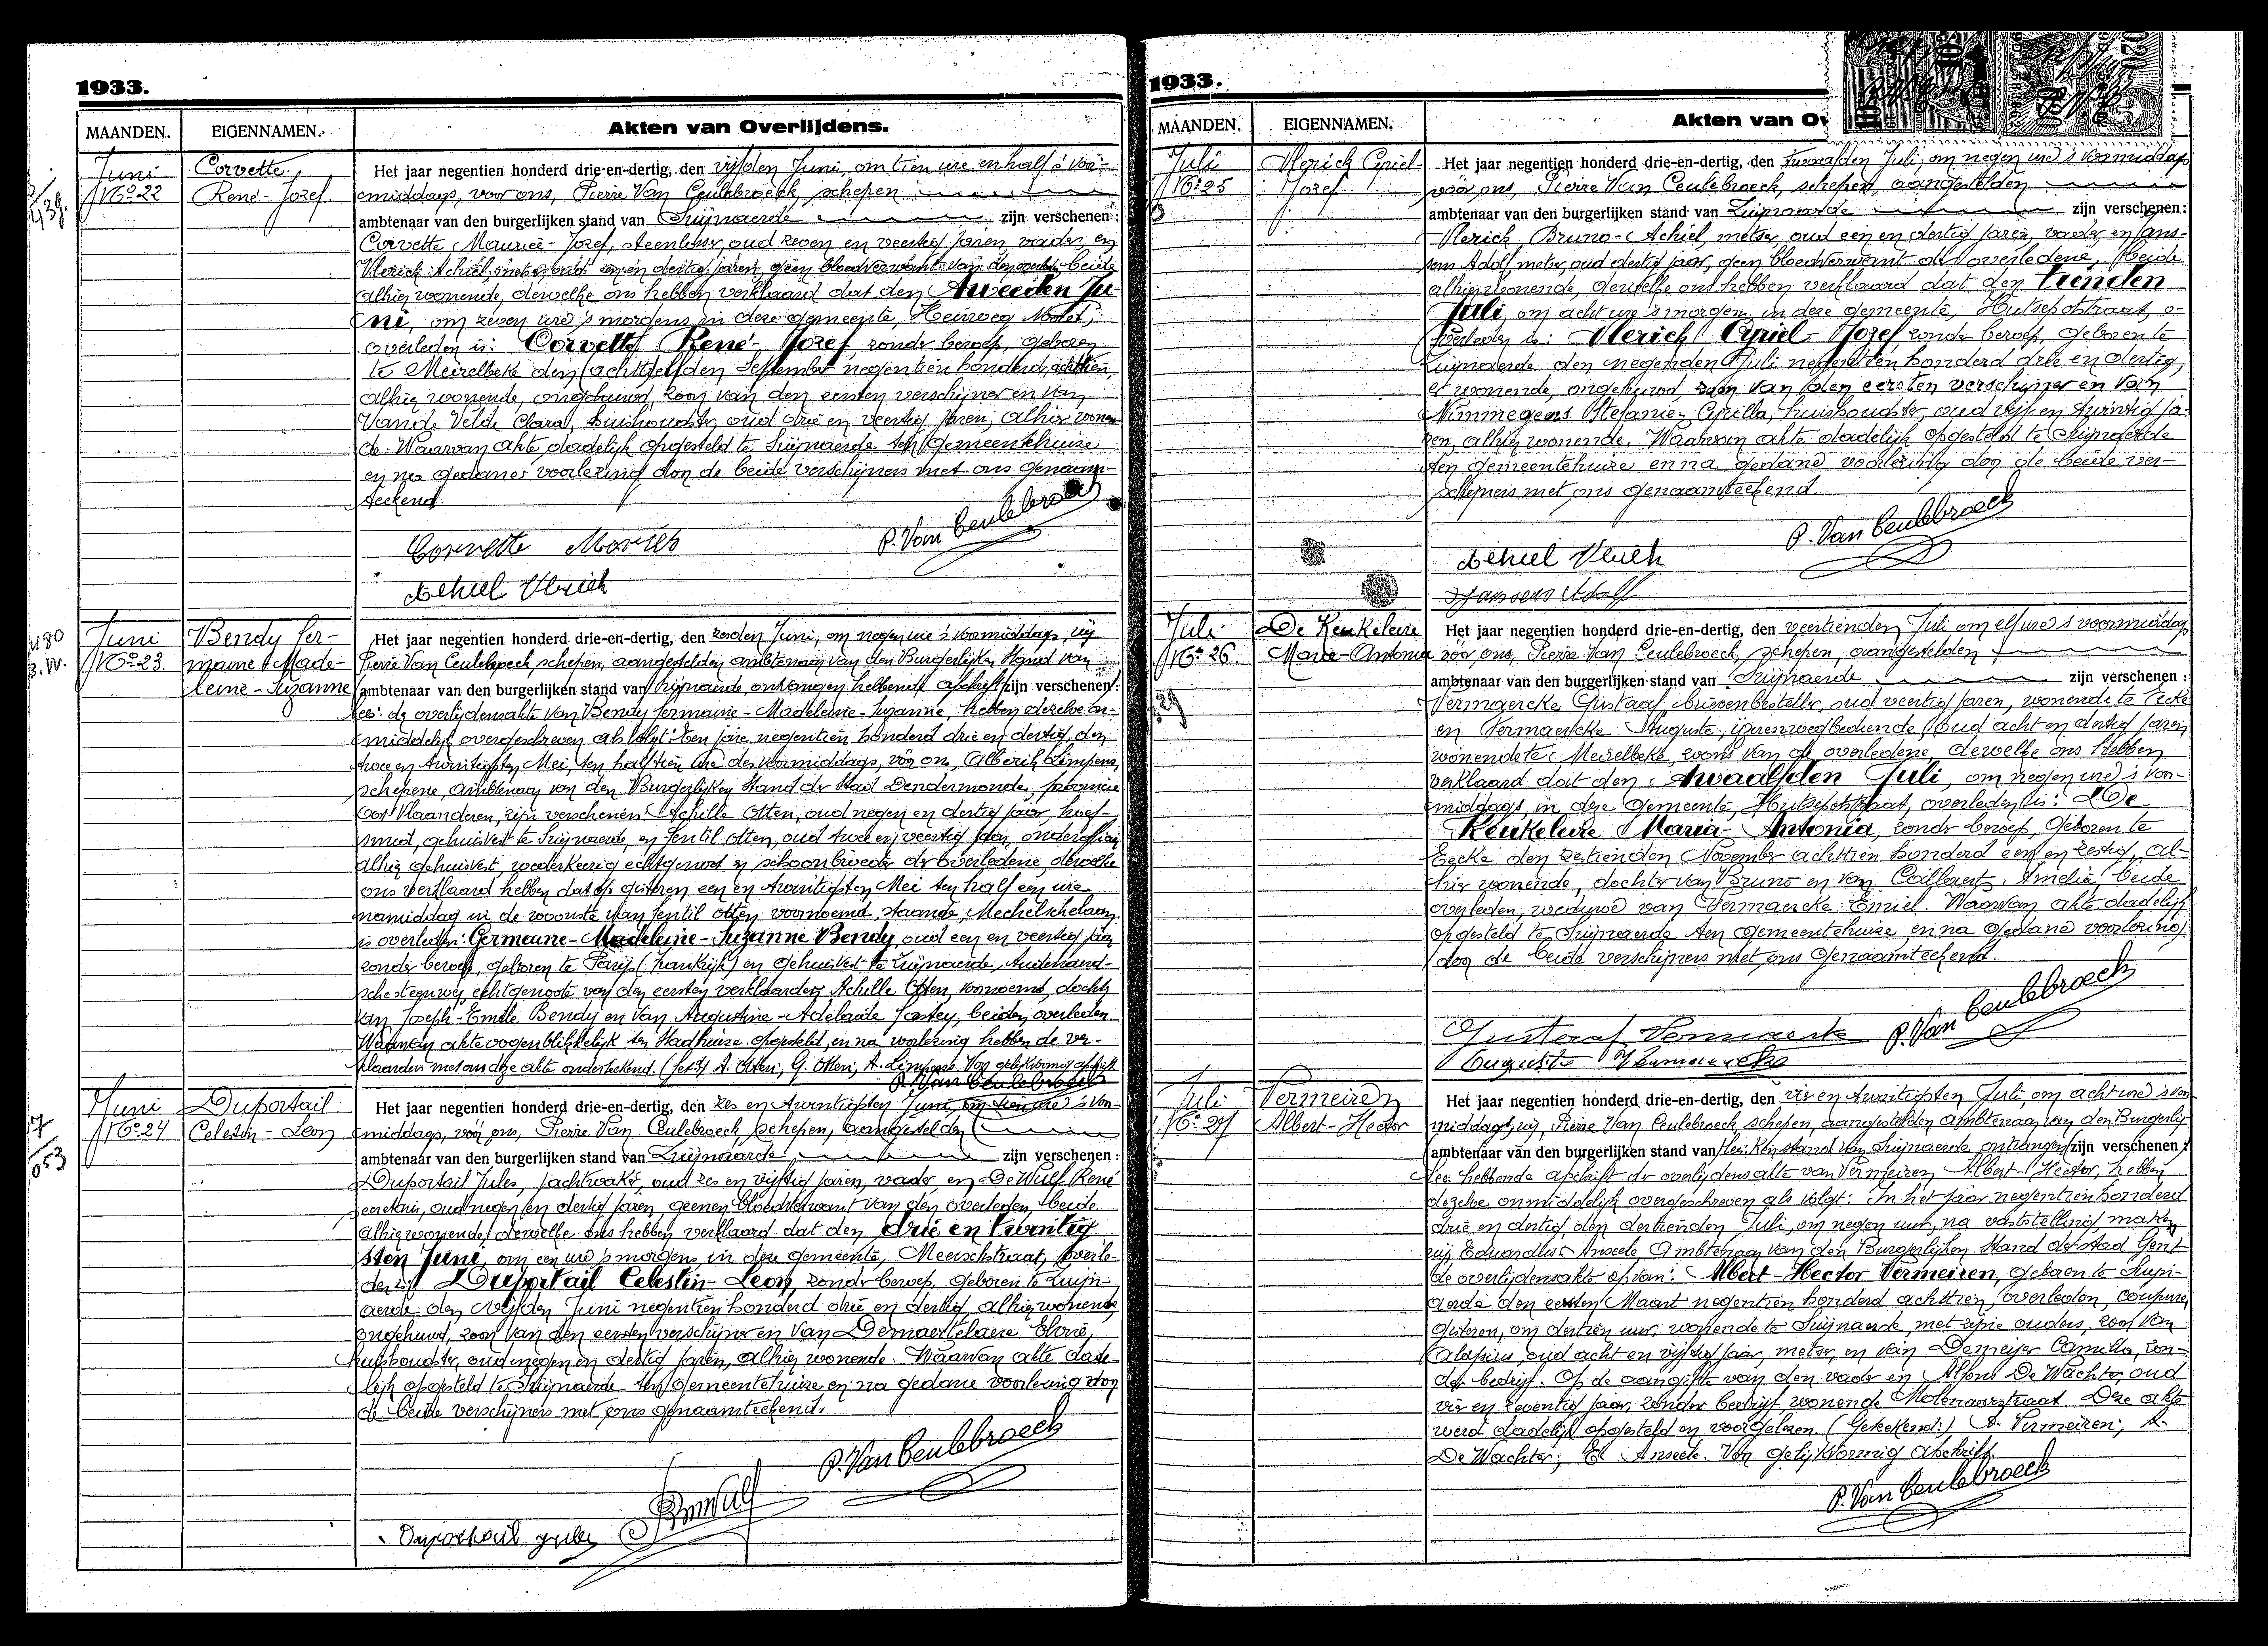 1933.
MAANDEN.
EIGENNAMEN.
Akten van Overlijdens.
Juni
No 22
Corvette,
René-Jozef.
Het jaar negentien honderd drie-en-dertig, den vijfden Juni, om tien ure en half 's voor-
middags, voor ons, Pierre Van Ceulebroeck, schepen
ambtenaar van den burgerlijken stand van Zwijnaerde zijn verschenen:
Corvette Maurice-Jozef, steenlosser, oud zeven en veertig jaren, vader, en
Vlerick Achiel, metser, oud een en dertig jaren, geen bloedverwant van den overledene, beide
alhier wonende, dewelke ons hebben verklaard dat den Tweeden Ju-
ni, om zeven ure 's morgens in deze gemeente, Heirweg Molet,
overleden is: Corvette René-Jozef, zonder beroep, geboren
te Meirelbeke den achtsten September negentien honderd achttien,
alhier wonende, ongehuwd, zoon van den eersten verschijner en van
Van de Velde Clara, huishoudster, oud drie en veertig jaren, alhier wonen-
de. Waarvan akte dadelijk opgesteld te Zwijnaerde ten Gemeentehuize
en na gedane voorlezing door de beide verschijners met ons genaam-
teekend.
Corvette Mories
P. Van Ceulebroeck
Achiel Vlrick
Juni
No 23.
Bendy Ger-
maine-Made-
leine-Suzanne
Het jaar negentien honderd drie-en-dertig, den zesden Juni, om negen ure 's voormiddags, wij
Pierre Van Ceulebroeck, schepen, aangestelden ambtenaar van den Burgerlijken Stand van
ambtenaar van den burgerlijken stand van Zwijnaerde, ontvangen hebbende afschrift zijn verschenen:
der overlijdensakte van Bendy Germaine-Madeleine-Suzanne, hebben dezelve on-
middelijk overgeschreven als volgt: Ten jare negentien honderd drie en dertig, den
twee en twintigsten Mei, ten half tien ure des voormiddags, vóór ons, Alberik Limpens,
schepene, ambtenaar van den Burgerlijken Stand der Stad Dendermonde, provincie
Oost Vlaanderen, zijn verschenen: Achille Otten, oud negen en dertig jaar, hoef-
smid, gehuisvest te Zwijnaerde, en Gentil Otten, oud twee en veertig jaar,
alhier gehuisvest, wederkeerig echtgenoot en schoonbroeder der overledene, dewelke
ons verklaard hebben dat op gisteren een en twintigsten Mei ten half een ure
namiddag in de woonste van Gentil Otten voornoemd, staande, Mechelschelaan
is overleden: Germaine-Madeleine-Suzanne Bendy, oud een en veertig jaar
zonder beroep, geboren te Parijs (Frankrijk) en gehuisvest te Zwijnaerde, Oudenaard-
schesteenweg, echtgenoote van den eersten verklaarder, Achille Otten, voornoemd, dochter
van Joseph-Emile Bendy en van Augustine-Adelaide Fastey, beiden overleden.
Waarvan akte oogenblikkelijk ten Stadhuize opgesteld, en na voorlezing hebben de ver-
klaarders met ons deze akte onderteekend. (get.) A. Otten; G. Otten; A. Limpens. Voor gelijkvormig afschrift
P. Van Ceulebroeck
Juni
No 24
Duportail
Celestin-Leon
Het jaar negentien honderd drie-en-dertig, den zes en twintigsten Juni, om tien ure 's voor-
middags, vóór ons, Pierre Van Ceulebroeck, schepen, aangestelden
ambtenaar van den burgerlijken stand van Zwijnaerde zijn verschenen:
Duportail Jules, jachtwaker, oud zes en vijftig jaren, vader, en De Wulf René
secretaris, oud negen en dertig jaren, geenen bloedverwant van den overleden, beide
alhier wonende, dewelke ons hebben verklaard dat den drie en twintig
sten Juni, om een ure 's morgens in deze gemeente, Meerschstraat, overle-
den is: Duportail Celestin-Leon, zonder beroep, geboren te Zwijn-
aerde den vijfden Juni negentien honderd drie en dertig, alhier wonende
ongehuwd, zoon van den eersten verschijner en van Demaertelaere Elvire,
huishoudster, oud negen en dertig jaren, alhier wonende. Waarvan akte dade-
lijk opgesteld te Zwijnaerde ten Gemeentehuize en na gedane voorlezing door
de beide verschijners met ons genaamteekend.
P. Van Ceulebroeck
Duportail Jules
1933.
MAANDEN.
EIGENNAMEN.
Akten van Ov
Juli
No 25
Vlerick Cyriel-
Jozef
Het jaar negentien honderd drie-en-dertig, den twaalfden Juli, om negen ure 's voormiddags
vóór ons, Pierre Van Ceulebroeck, schepen, aangestelden
ambtenaar van den burgerlijken stand van Zwijnaerde zijn verschenen:
Vlerick, Bruno-Achiel, metser, oud een en dertig jaren, vader, en Jans-
sens Adolf, metser, oud dertig jaar, geen bloedverwant der overledene, beide
alhier wonende, dewelke ons hebben verklaard dat den tienden
Juli, om acht ure 's morgens, in deze gemeente, Hutsepotstraat, o-
verleden is: Vlerick Cyriel-Jozef, zonder beroep, geboren te
Zwijnaerde den negenden Juli negentien honderd drie en dertig,
er wonende, ongehuwd, zoon van den eersten verschijner en van
Nimmegeers Stefanie-Cyrilla, huishoudster, oud vijf en twintig ja-
ren, alhier wonende. Waarvan akte dadelijk opgesteld te Zwijnaerde
ten gemeentehuize en na gedane voorlezing door de beide ver-
schijners met ons genaamteekend.
P. Van Ceulebroeck
Achiel Vlrick
Janssens Adolf
Juli
No 26.
De Keukeleire
Maria-Antonia
Het jaar negentien honderd drie-en-dertig, den veertienden Juli om elf ure 's voormiddags
vóór ons, Pierre Van Ceulebroeck, schepen, aangestelden
ambtenaar van den burgerlijken stand van Zwijnaerde zijn verschenen:
Vermaercke Gustaaf, brievenbesteller, oud veertig jaren, wonende te Eecke
en Vermaercke Auguste, ijzerenwegbediende, oud acht en dertig jaren
wonende te Meirelbeke, zoons van de overledene, dewelke ons hebben
verklaard dat den twaalfden Juli, om negen ure 's voor-
middags, in deze gemeente, Hutsepotstraat, overleden is: De
Keukeleire Maria-Antonia, zonder beroep, geboren te
Eecke den zestienden November achttien honderd een en zestig, al-
hier wonende, dochter van Bruno en van Coillevert, Amelia, beide
overleden, weduwe van Vermaercke Emiel. Waarvan akte dadelijk
opgesteld te Zwijnaerde ten gemeentehuize en na gedane voorlezing
door de beide verschijners met ons genaamteekend.
Gustaaf Vermaercke
P. Van Ceulebroeck
Auguste Vermaercke
Juli
No 27
Vermeiren
Albert-Hector
Het jaar negentien honderd drie-en-dertig, den vier en twintigsten Juli om acht ure 's voor-
middags, wij, Pierre Van Ceulebroeck, schepen, aangestelden ambtenaar van den Burgerlij-
ambtenaar van den burgerlijken stand van ken stand van Zwijnaerde, ontvangen zijn verschenen:
hebbende afschrift der overlijdensakte van Vermeiren Albert-Hector, hebben
dezelve onmiddelijk overgeschreven als volgt: In het jaar negentien honderd
drie en dertig den dertienden Juli, om negen uur, na vaststelling maken
wij Eduardus Anseele, Ambtenaar van den Burgerlijken Stand der Stad Gent
de overlijdensakte op van: Albert-Hector Vermeiren, geboren te Zwijn-
aerde den eersten Maart negentien honderd achttien, overleden, coupure,
gisteren, om dertien uur, wonende te Zwijnaerde, met zijne ouders, zoon van
Aloysius, oud acht en vijftig jaar, metser, en van Demeijer Camilla, zon-
der bedrijf. Op de aangifte van den vader en Alfons De Wachter, oud
vier en zeventig jaar, zonder bedrijf, wonende Molenaarstraat. Deze akte
werd dadelijk opgesteld en voorgelezen. (Geteekend:) A. Vermeiren; A.
De Wachter; E. Anseele. Voor gelijkvormig afschrift.
P. Van Ceulebroeck